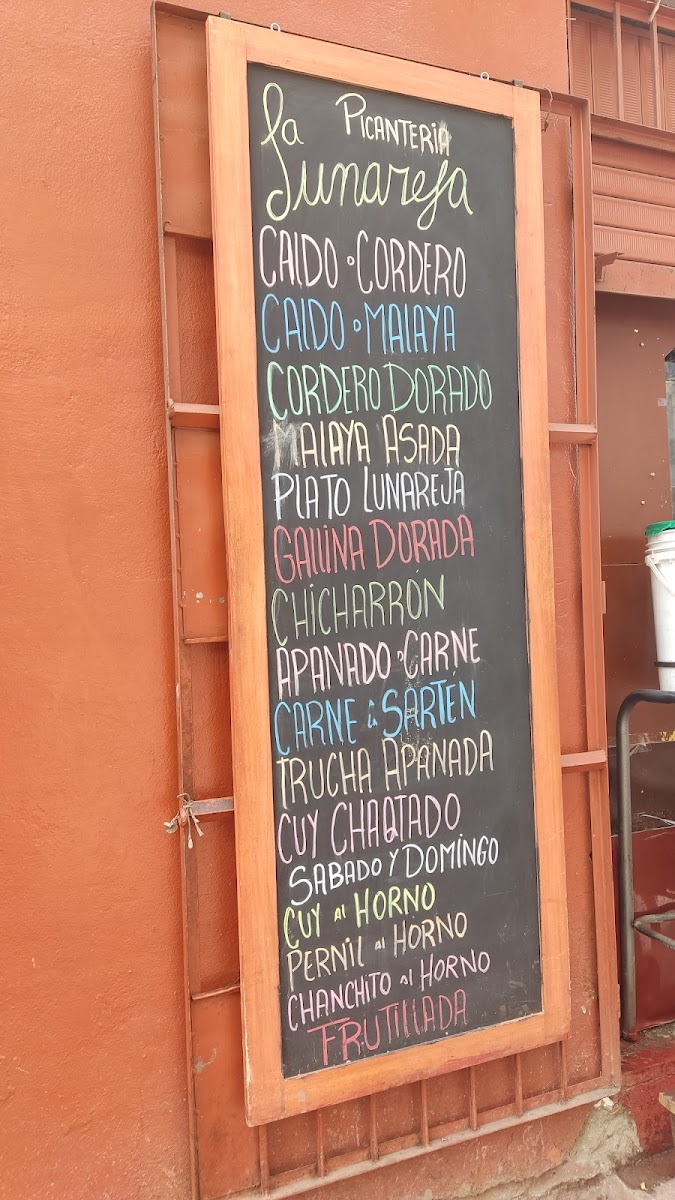 Picanteria
La Lunareja
CALDO DE CORDERO
CALDO DE MALAYA
CORDERO DORADO
MALAYA ASADA
PLATO LUNAREJA
GALLINA DORADA
CHICHARRÓN
APANADO DE CARNE
CARNE a la SARTÉN
TRUCHA APANADA
CUY CHAQTADO
SABADO Y DOMINGO
CUY al HORNO
PERNIL al HORNO
CHANCHITO al HORNO
FRUTILLADA